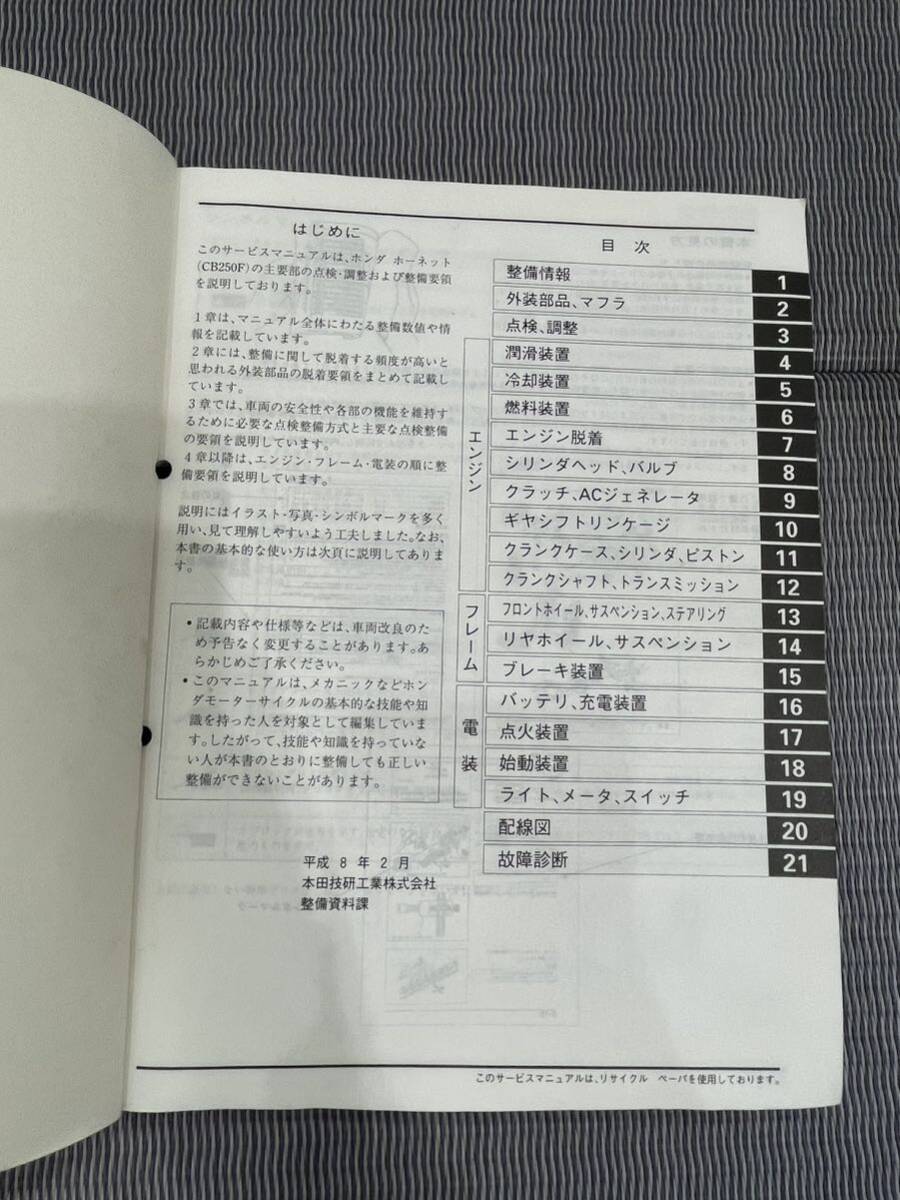 はじめに
このサービスマニュアルは、ホンダ ホーネット
(CB250F)の主要部の点検・調整および整備要領
を説明しております。
1章は、マニュアル全体にわたる整備数値や情
報を記載しています。
2章には、整備に関して脱着する頻度が高いと
思われる外装部品の脱着要領をまとめて記載し
ています。
3章では、車両の安全性や各部の機能を維持す
るために必要な点検整備方式と主要な点検整備
の要領を説明しています。
4章以降は、エンジン・フレーム・電装の順に整
備要領を説明しています。
説明にはイラスト・写真・シンボルマークを多く
用い、見て理解しやすいよう工夫しました。なお、
本書の基本的な使い方は次頁に説明してありま
す。
• 記載内容や仕様等などは、車両改良のた
め予告なく変更することがあります。あ
らかじめご了承ください。
• このマニュアルは、メカニックなどホン
ダモーターサイクルの基本的な技能や知
識を持った人を対象として編集していま
す。したがって、技能や知識を持っていな
い人が本書のとおりに整備しても正しい
整備ができないことがあります。
平成 8 年 2 月
本田技研工業株式会社
整備資料課
目 次
整備情報 1
外装部品、マフラ 2
点検、調整 3
エンジン
潤滑装置 4
冷却装置 5
燃料装置 6
エンジン脱着 7
シリンダヘッド、バルブ 8
クラッチ、ACジェネレータ 9
ギヤシフトリンケージ 10
クランクケース、シリンダ、ピストン 11
クランクシャフト、トランスミッション 12
フレーム
フロントホイール、サスペンション、ステアリング 13
リヤホイール、サスペンション 14
ブレーキ装置 15
電装
バッテリ、充電装置 16
点火装置 17
始動装置 18
ライト、メータ、スイッチ 19
配線図 20
故障診断 21
このサービスマニュアルは、リサイクル ペーパを使用しております。